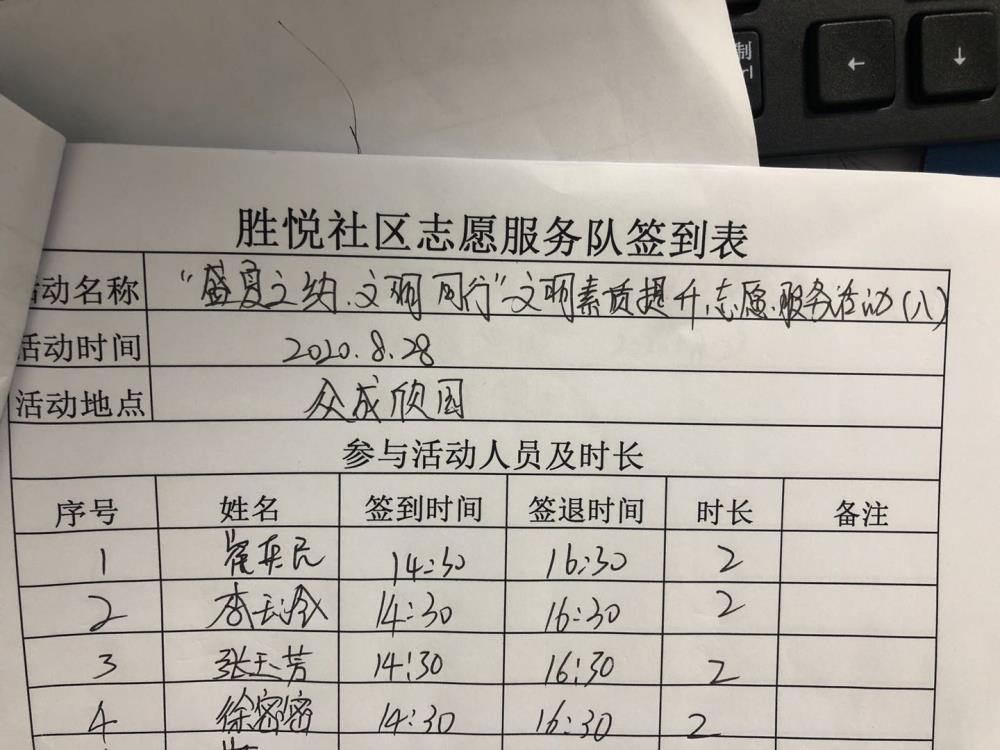 制
←
↓
胜悦社区志愿服务队签到表
活动名称 “盛夏之约、文明同行”文明素质提升志愿服务活动(八)
活动时间 2020.8.28
活动地点 众成欣园
参与活动人员及时长
序号 姓名 签到时间 签退时间 时长 备注
1 崔英民 14:30 16:30 2
2 李玉玲 14:30 16:30 2
3 张玉芳 14:30 16:30 2
4 徐密密 14:30 16:30 2